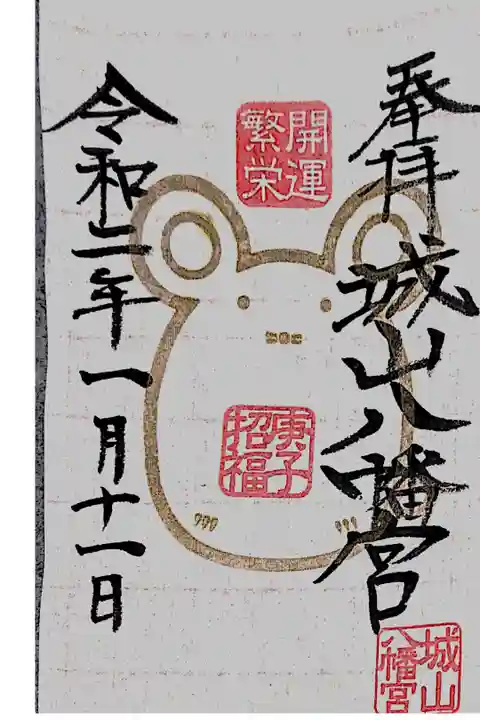 奉拝
城山八幡宮
開運
繁栄
庚子
招福
令和二年一月十一日
城山
八幡宮